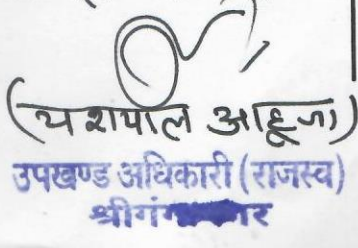 (यशपाल आहूजा)
उपखण्ड अधिकारी (राजस्व)